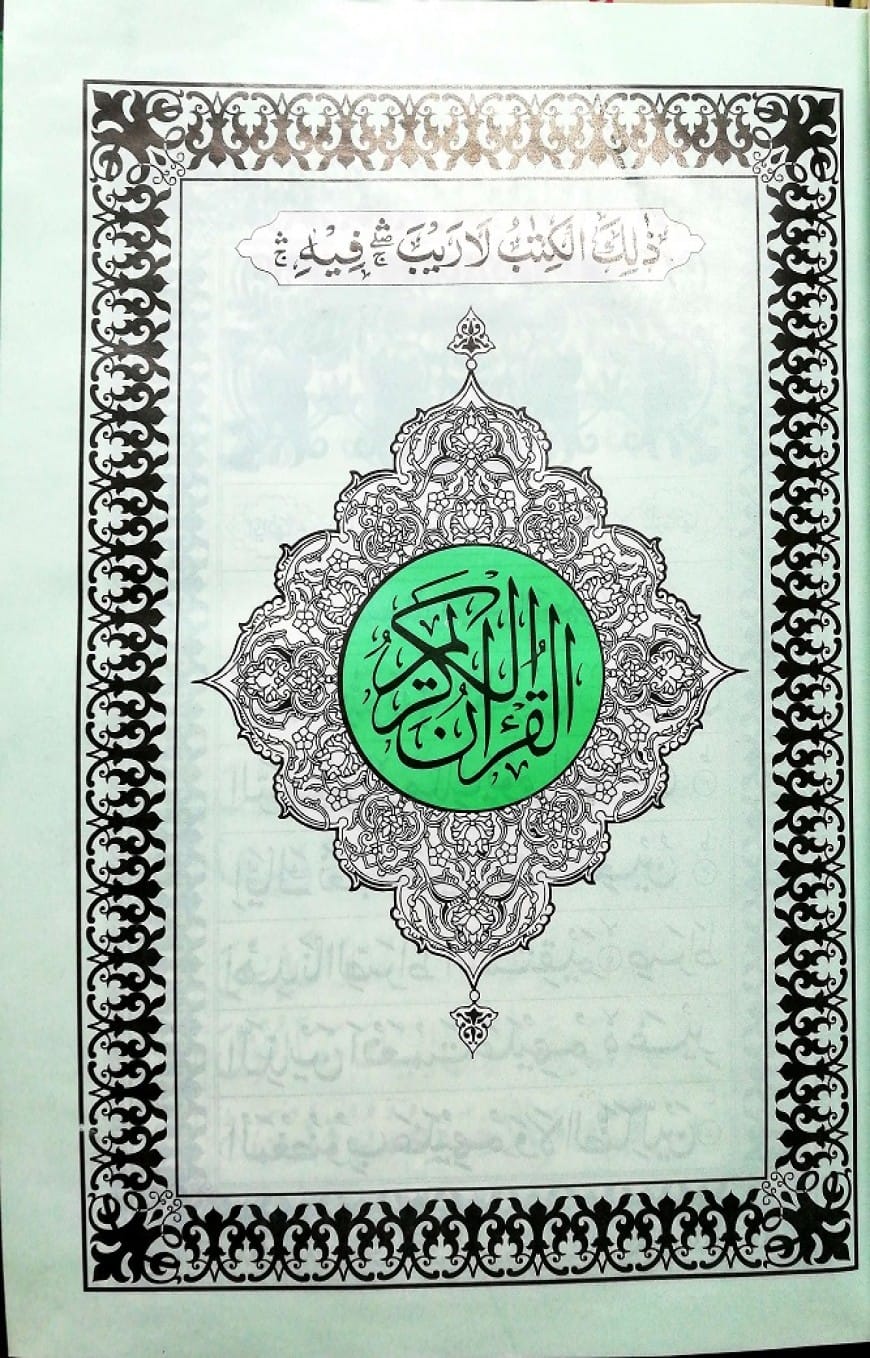 ذٰلِكَ الْكِتٰبُ لَا رَيْبَ ۛۖۚ فِيْهِ ۛۚ
القرآن الكريم